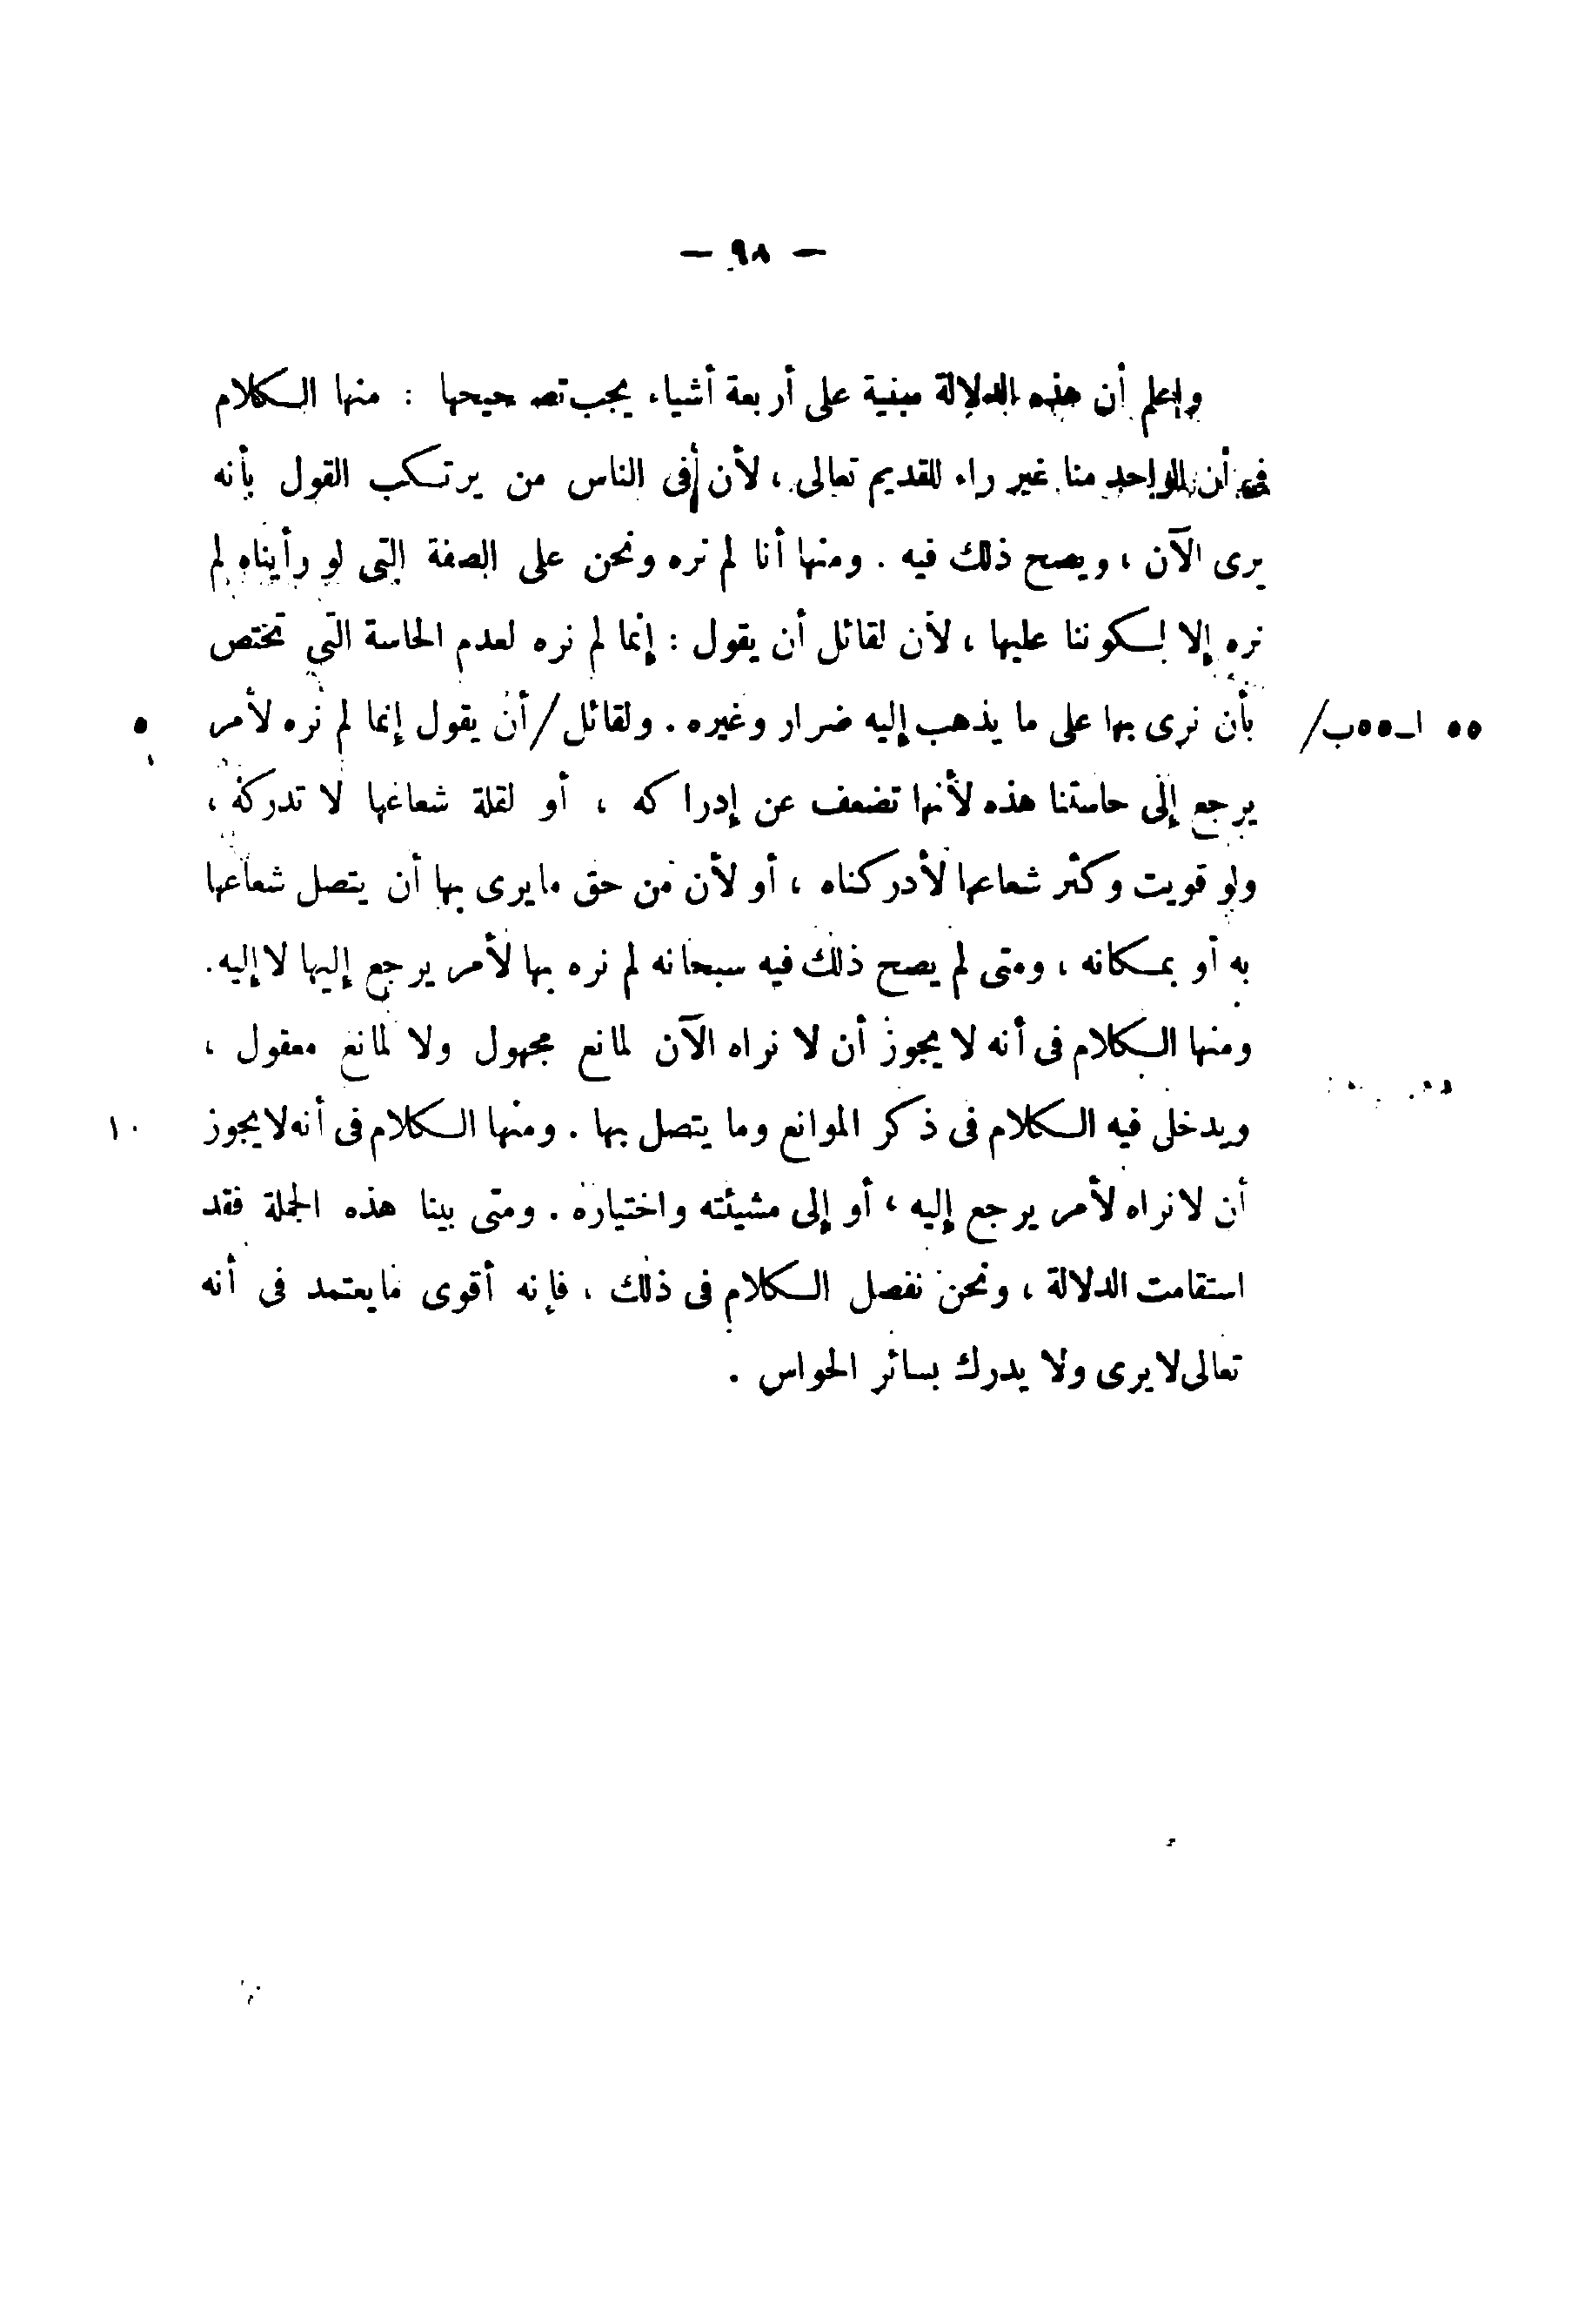 — ٩٨ —
واعلم أن هذه الدلالة مبنية على أربعة أشياء يجب تصحيحها : منها الكلام
فى أن الواحد منا غير راء للقديم تعالى ، لأن فى الناس من يرتكب القول بأنه
يرى الآن ، ويصح ذلك فيه . ومنها أنا لم نره ونحن على الصفة التى لو رأيناه لم
نره إلا لكوننا عليها ، لأن لقائل أن يقول : إنما لم نره لعدم الحاسة التى تختص
٥٥ ا ــ ٥٥ب/ بأن نرى بها على ما يذهب إليه ضرار وغيره . ولقائل / أن يقول إنما لم نره لأمر ٥
يرجع إلى حاستنا هذه لأنها تضعف عن إدراكه ، أو لقلة شعاعها لا تدركه ،
ولو قويت وكثر شعاعها لأدركناه ، أو لأن من حق ما يرى بها أن يتصل شعاعها
به أو بمكانه ، ومتى لم يصح ذلك فيه سبحانه لم نره بها لأمر يرجع إليها لا إليه .
ومنها الكلام فى أنه لا يجوز أن لا نراه الآن لمانع مجهول ولا لمانع معقول ،
ويدخل فيه الكلام فى ذكر الموانع وما يتصل بها . ومنها الكلام فى أنه لا يجوز ١٠
أن لا نراه لأمر يرجع إليه ، أو إلى مشيئته واختياره . ومتى بينا هذه الجملة فقد
استقامت الدلالة ، ونحن نفصل الكلام فى ذلك ، فإنه أقوى ما يعتمد فى أنه
تعالى لا يرى ولا يدرك بسائر الحواس .